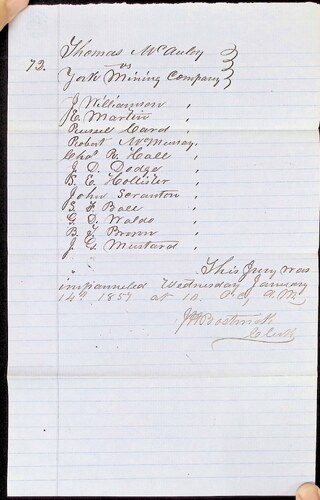 Thomas McAuley
72. vs
York Mining Company
J Williamson ,
K. Martin ,
Russell Card ,
Robert McMurray ,
Chas R. Hall ,
J. D. Dodge ,
B. E. Hollister ,
John Scranton ,
S. F. Ball ,
G. D. Waldo ,
B. F. Brown ,
J. G. Mustard ,
This Jury was
impanneled Wednesday January
14th 1857 at 10. A.M.
Clerk